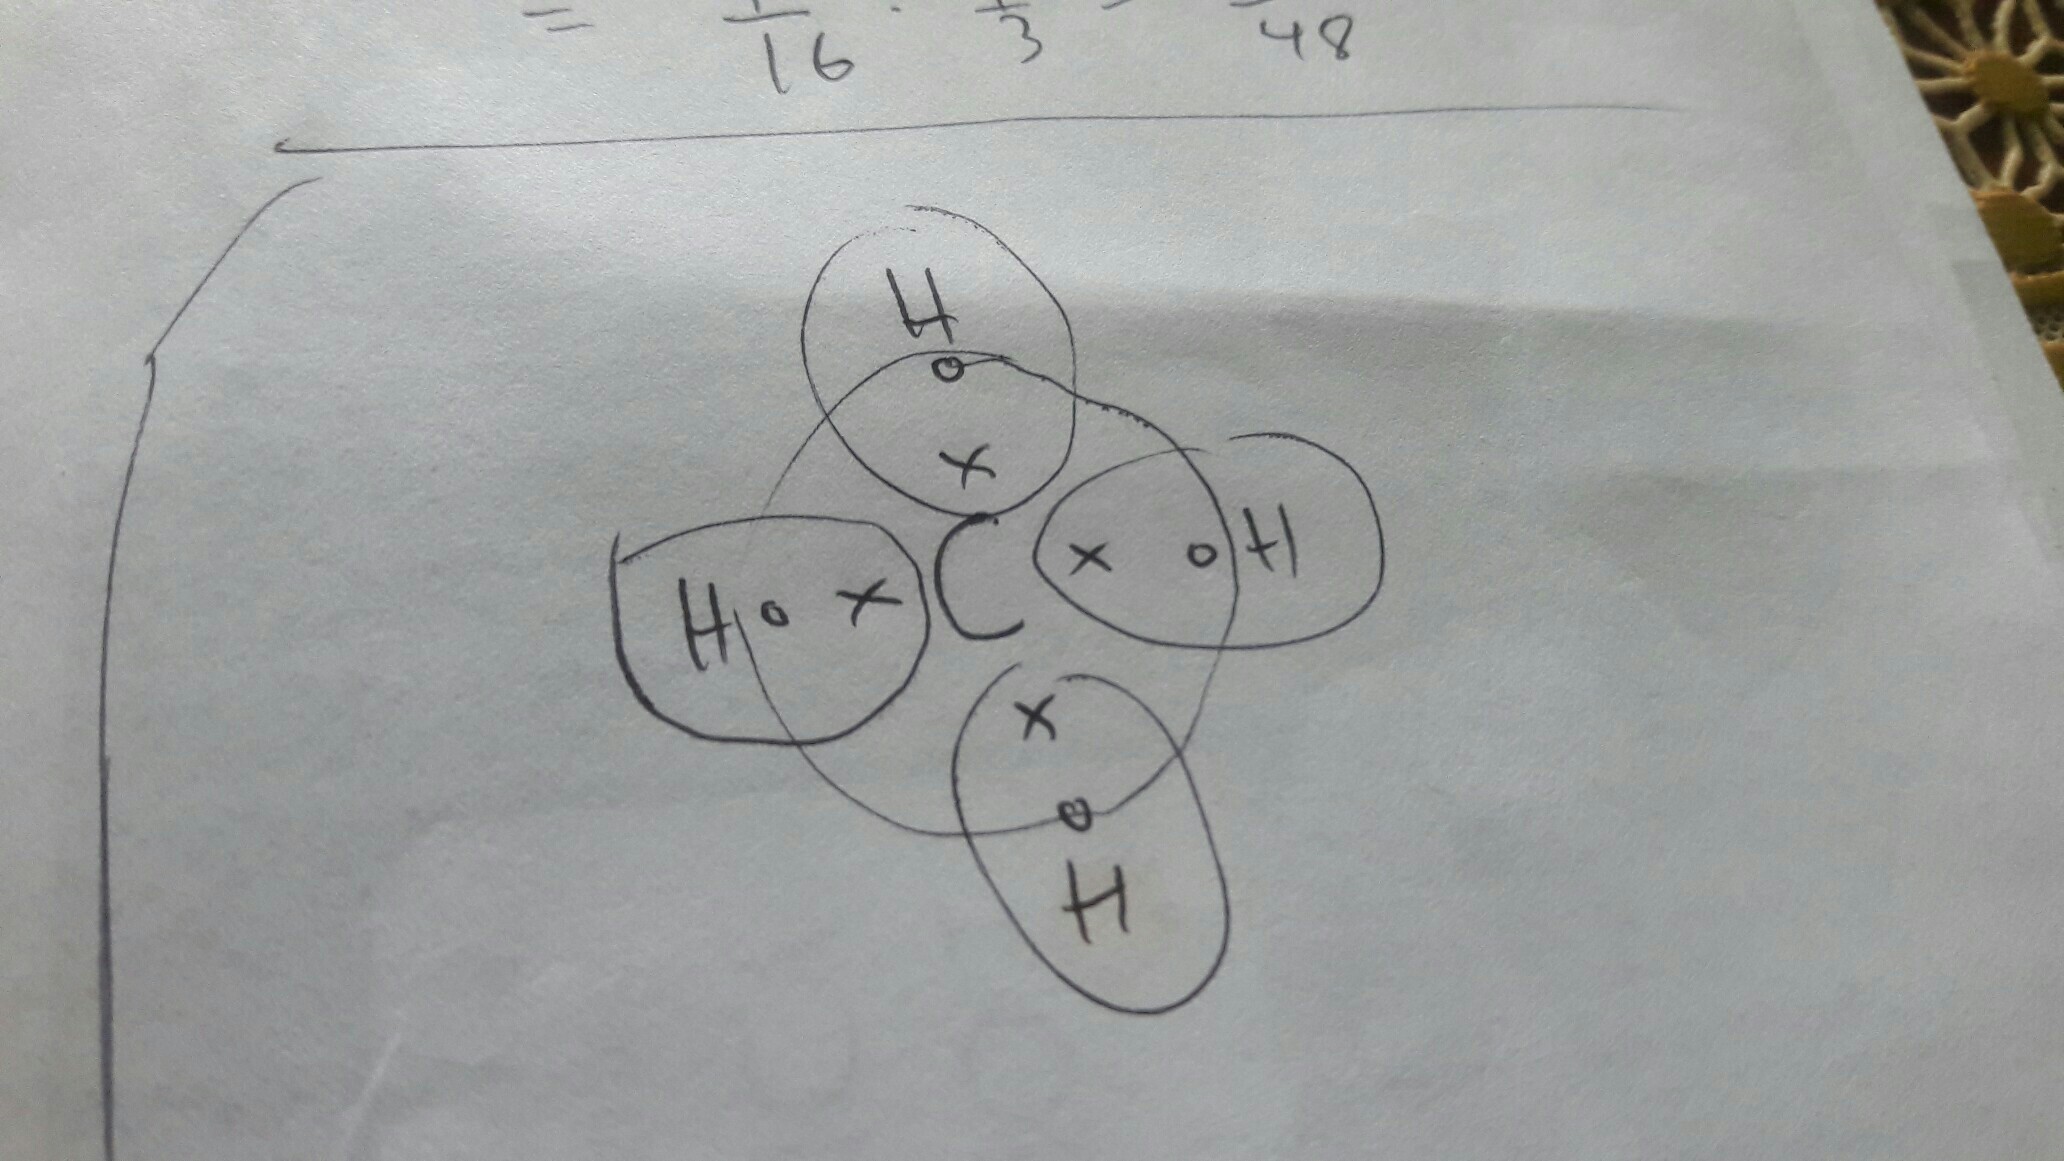 = 1/16 · 1/3 = 1/48
H
o
x
H o x C x o H
x
o
H